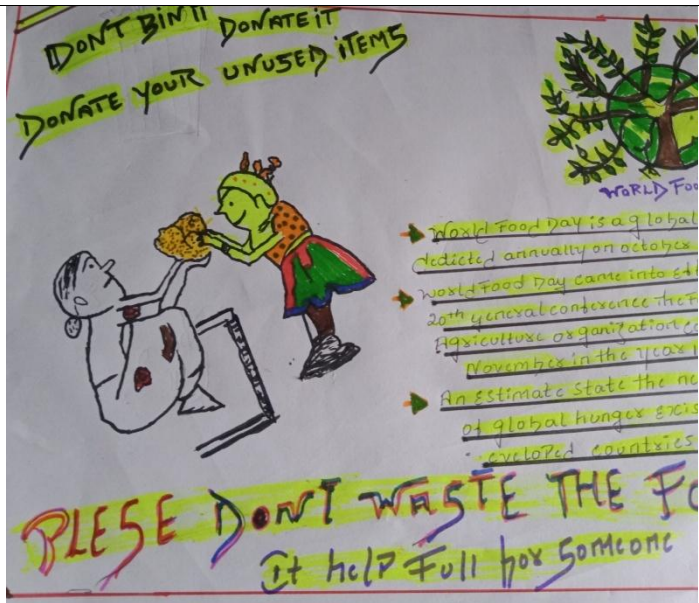 DON'T BIN IT DONATE IT
DONATE YOUR UNUSED ITEMS
WORLD FOO
World Food Day is a global
dedicted annually on october
World Food Day came into eff
20th general conference the F
Agriculture organization
November in the year
An Estimate state the ne
of global hunger excis
eveloped countries
PLESE DON'T WASTE THE FO
It help Full for Someone